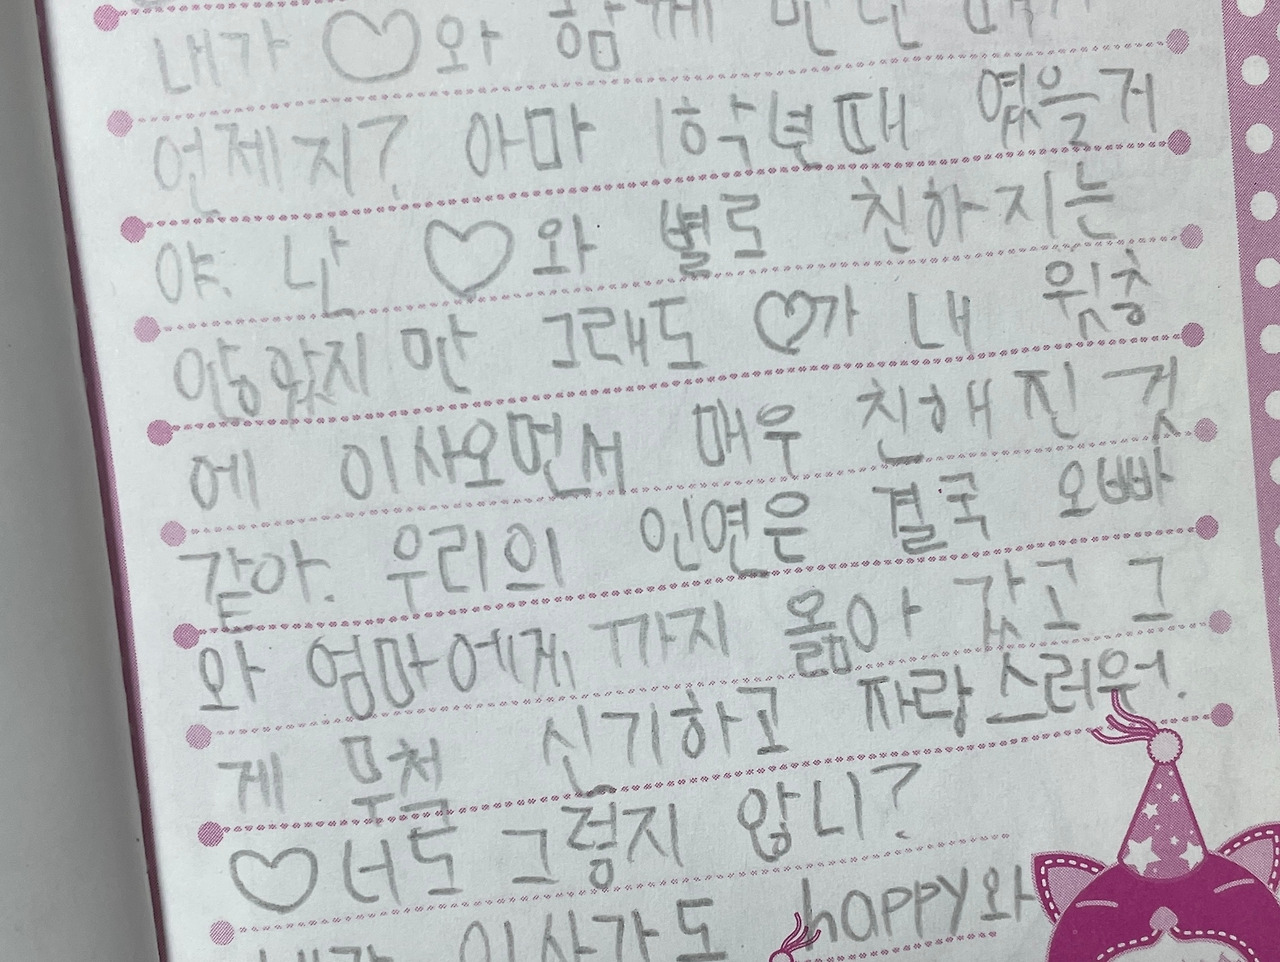 내가 ♡와 함께 만난 때가
언제지? 아마 1학년때 였을거
야. 난 ♡와 별로 친하지는
않았지만 그래도 ♡가 내 윗층
에 이사오면서 매우 친해진 것
같아. 우리의 인연은 결국 오빠
와 엄마에게까지 옮아 갔고 그
게 무척 신기하고 자랑스러워.
♡너도 그렇지 않니?
내가 이사가도 happy와